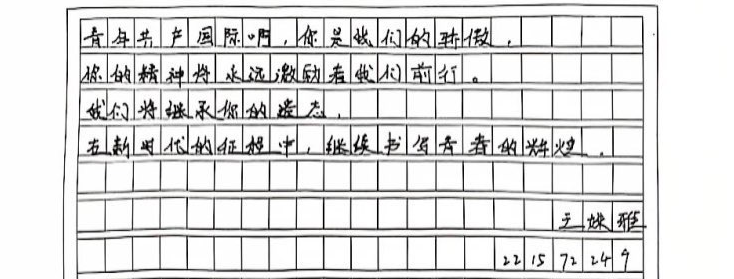 青年共产国际啊，你是我们的骄傲，
你的精神将永远激励着我们前行。
我们将继承你的遗志，
在新时代的征程中，继续书写青春的辉煌。
王姝雅
22 15 72 24 9